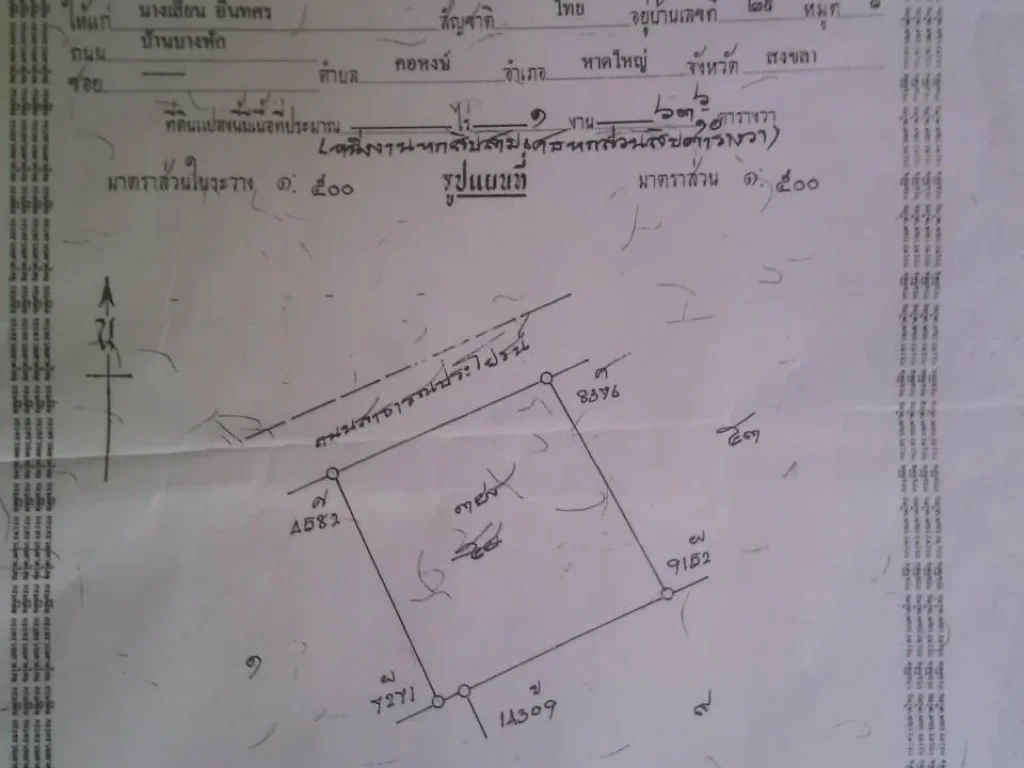 ให้แก่ นางเสียน อินทศร สัญชาติ ไทย อยู่บ้านเลขที่ ๒๕ หมู่ที่
ถนน บ้านบางหัก
ซอย — ตำบล คอหงษ์ อำเภอ หาดใหญ่ จังหวัด สงขลา
ที่ดินแปลงนี้มีเนื้อที่ประมาณ ไร่ ๑ งาน ตารางวา
(หนึ่งงานหกสิบสามเศษหกส่วนสิบตารางวา)
มาตราส่วนในระวาง ๑: ๕๐๐ รูปแผนที่ มาตราส่วน ๑: ๕๐๐
น
ถนนสาธารณประโยชน์
8376
๕๓
4582
9152
๑
7271
14309
๙